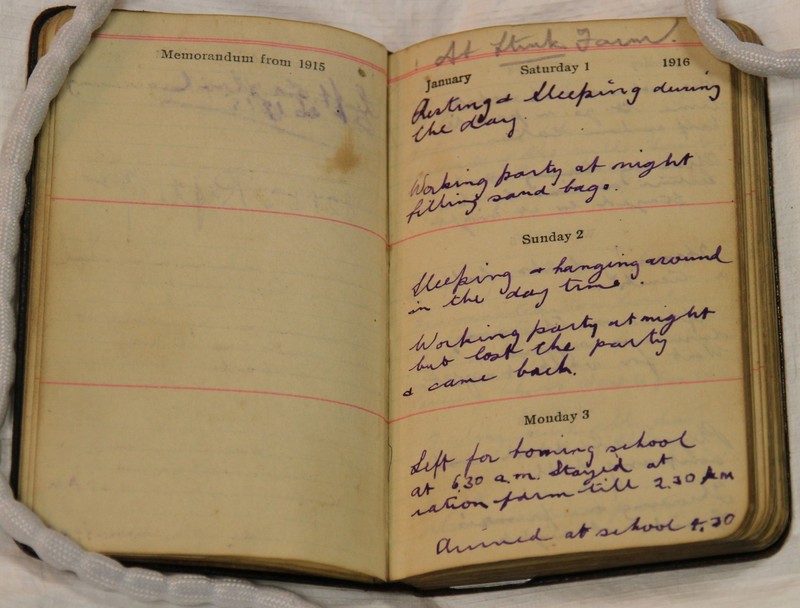 Memorandum from 1915
At Stink Farm.
January Saturday 1 1916
Resting & Sleeping during
the day.
Working party at night
filling sand bags.
Sunday 2
Sleeping & hanging around
in the day time.
Working party at night
but lost the party
& came back.
Monday 3
Left for boming school
at 6.30 a.m. Stayed at
ration farm till 2.30 pm
Arrived at school 4.30